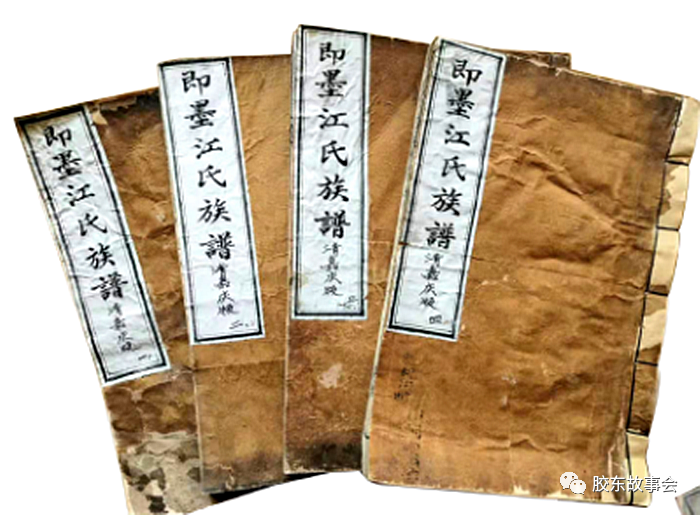 即墨江氏族譜
清嘉庆版
即墨江氏族譜
清嘉庆版 二
即墨江氏族譜
清嘉庆版
即墨江氏族譜
清嘉庆版 四
胶东故事会